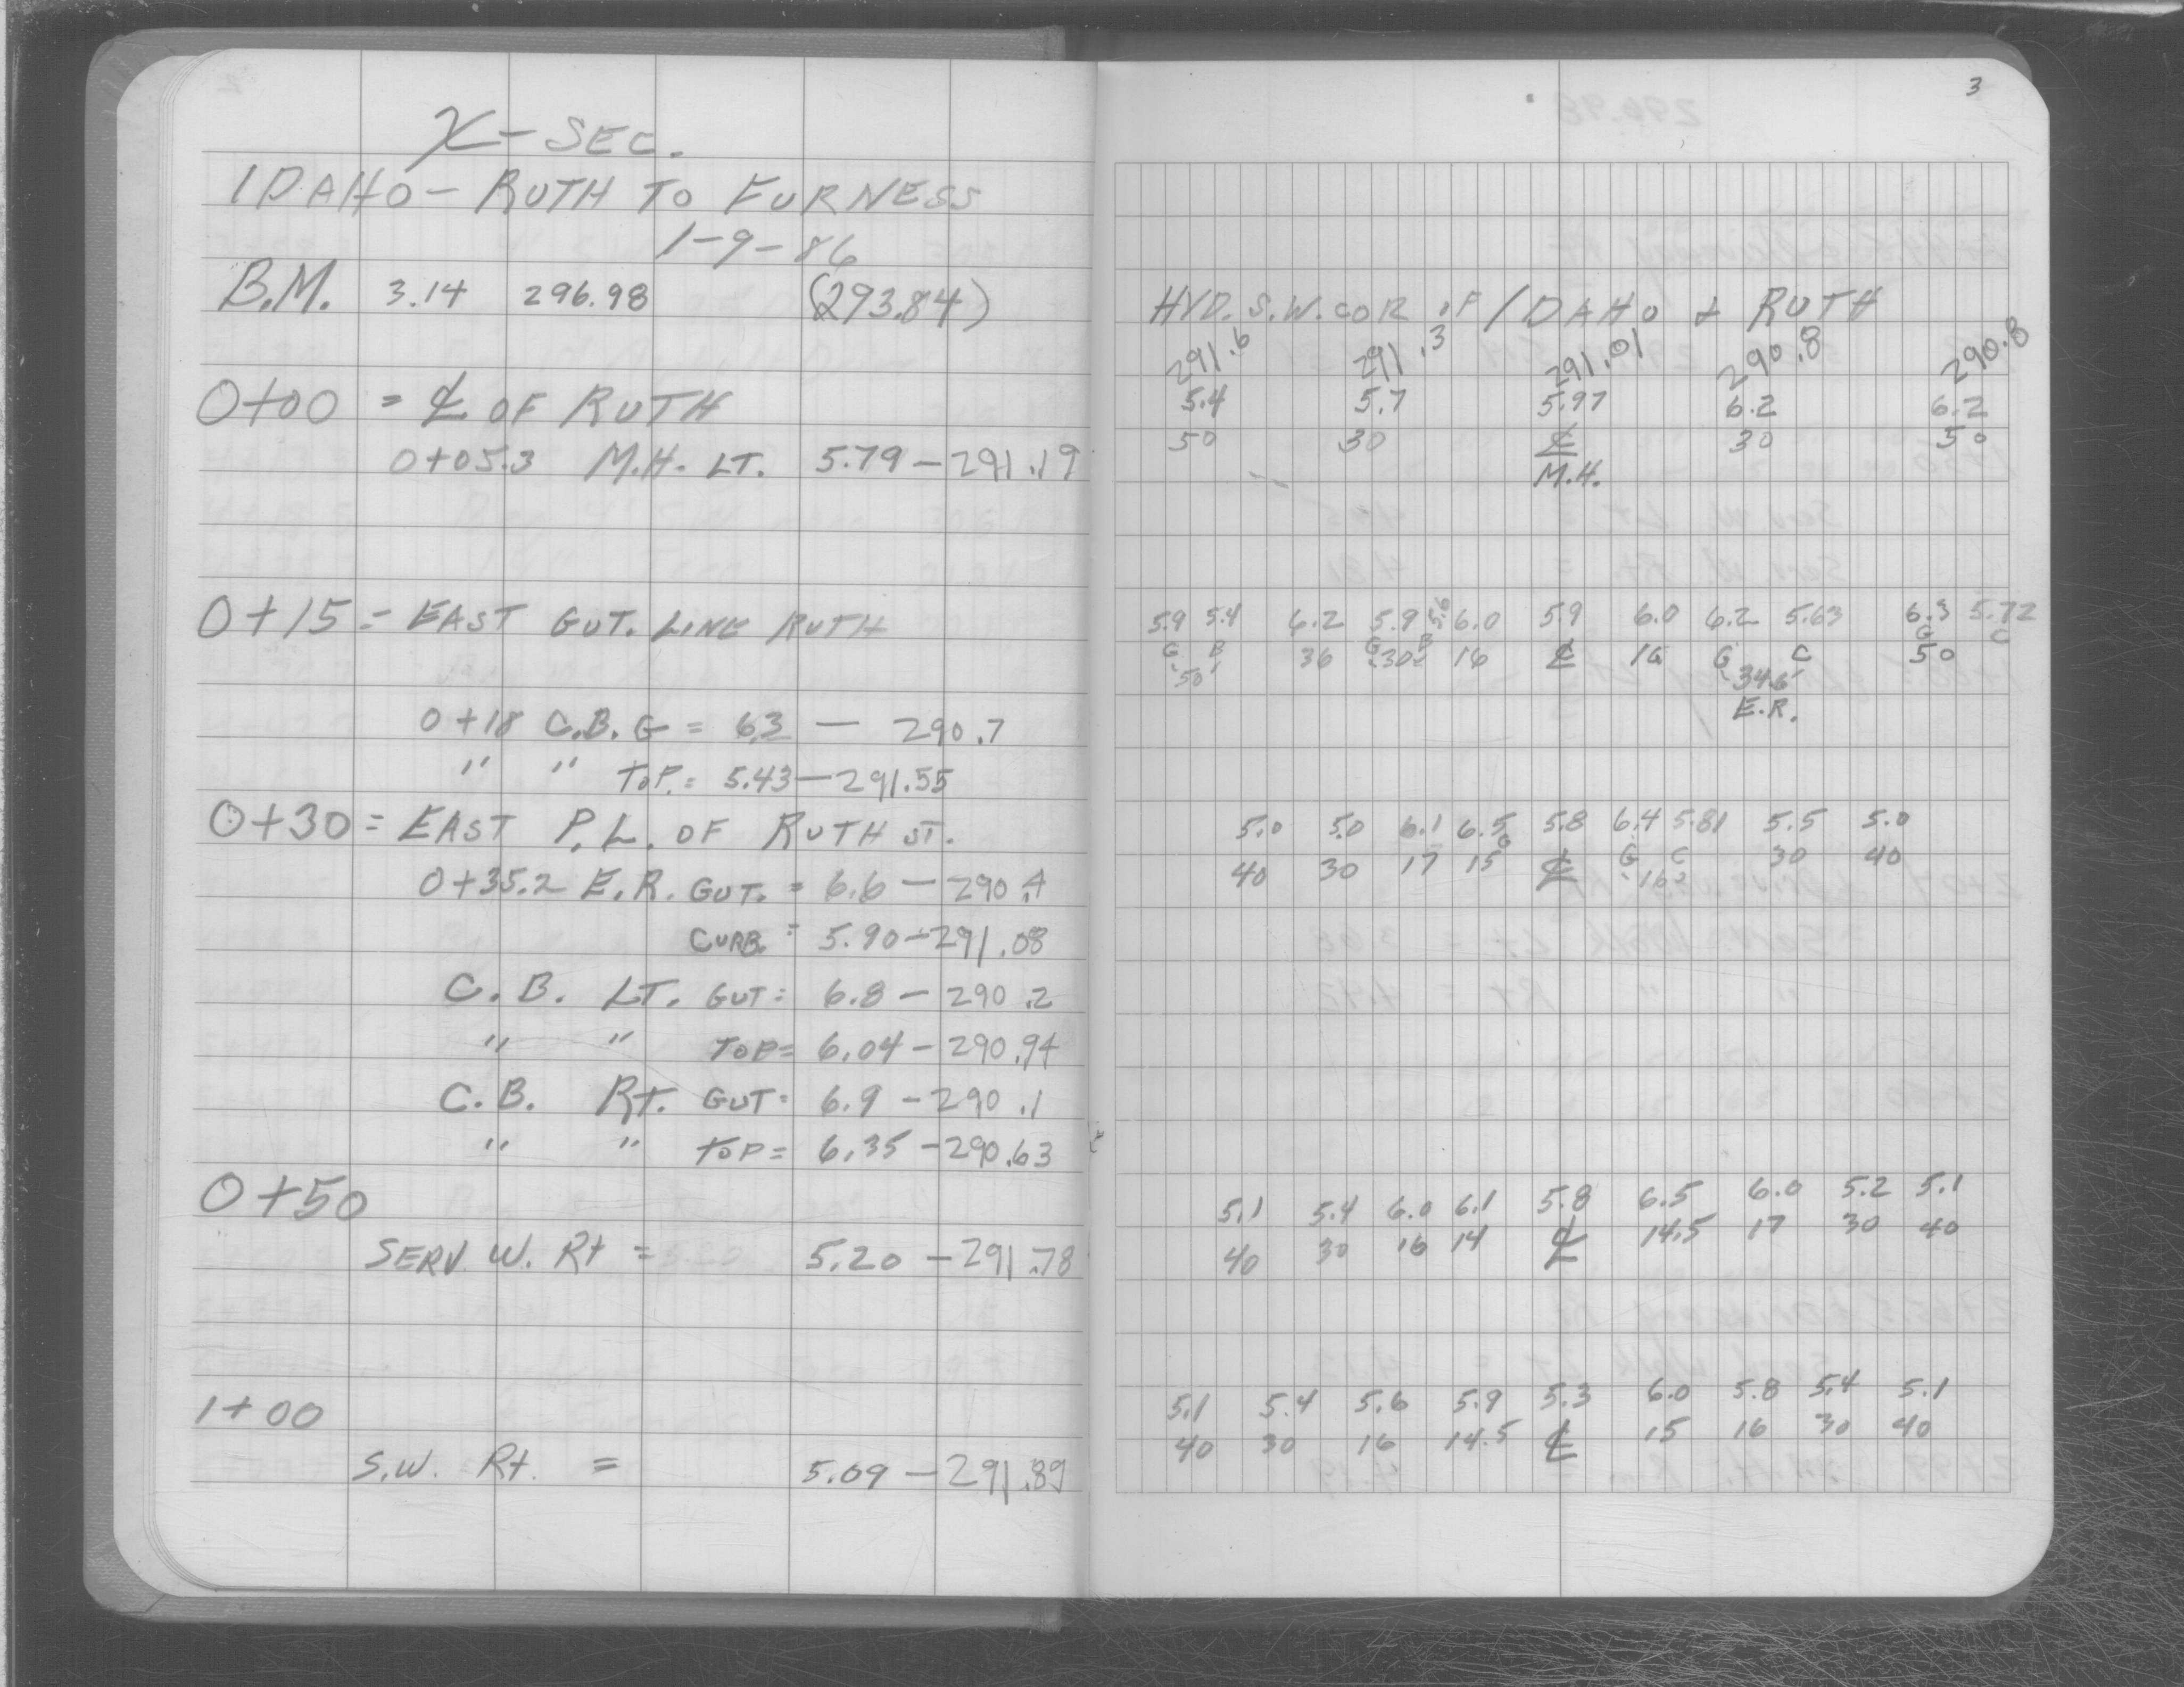 X-SEC.
IDAHO - RUTH TO FURNESS
1-9-86
B.M. 3.14 296.98 (293.84)
0+00 = ℄ OF RUTH
0+05.3 M.H. LT. 5.79 - 291.19
0+15 = EAST GUT. LINE RUTH
0+18 C.B. G = 6.3 - 290.7
" " TOP. = 5.43 - 291.55
0+30 = EAST P.L. OF RUTH ST.
0+35.2 E.R. GUT. = 6.6 - 290.4
CURB = 5.90 - 291.08
C.B. LT. GUT = 6.8 - 290.2
" " TOP = 6.04 - 290.94
C.B. Rt. GUT = 6.9 - 290.1
" " TOP = 6.35 - 290.63
0+50
SERV. W. Rt = 5.20 - 291.78
1+00
S.W. Rt. = 5.09 - 291.89
3
HYD. S.W. COR OF IDAHO + RUTH
291.6 291.3 291.01 290.8 290.8
5.4 5.7 5.97 6.2 6.2
50 30 ℄ 30 50
M.H.
5.9 5.4 6.2 5.9 5.6 6.0 5.9 6.0 6.2 5.63 6.3 5.72
G B 36 G 30 B 16 ℄ 16 G C G 50 C
50 34.6
E.R.
5.0 5.0 6.1 6.5 5.8 6.4 5.81 5.5 5.0
40 30 17 15 G ℄ G C 30 40
16
5.1 5.4 6.0 6.1 5.8 6.5 6.0 5.2 5.1
40 30 16 14 ℄ 14.5 17 30 40
5.1 5.4 5.6 5.9 5.3 6.0 5.8 5.4 5.1
40 30 16 14.5 ℄ 15 16 30 40